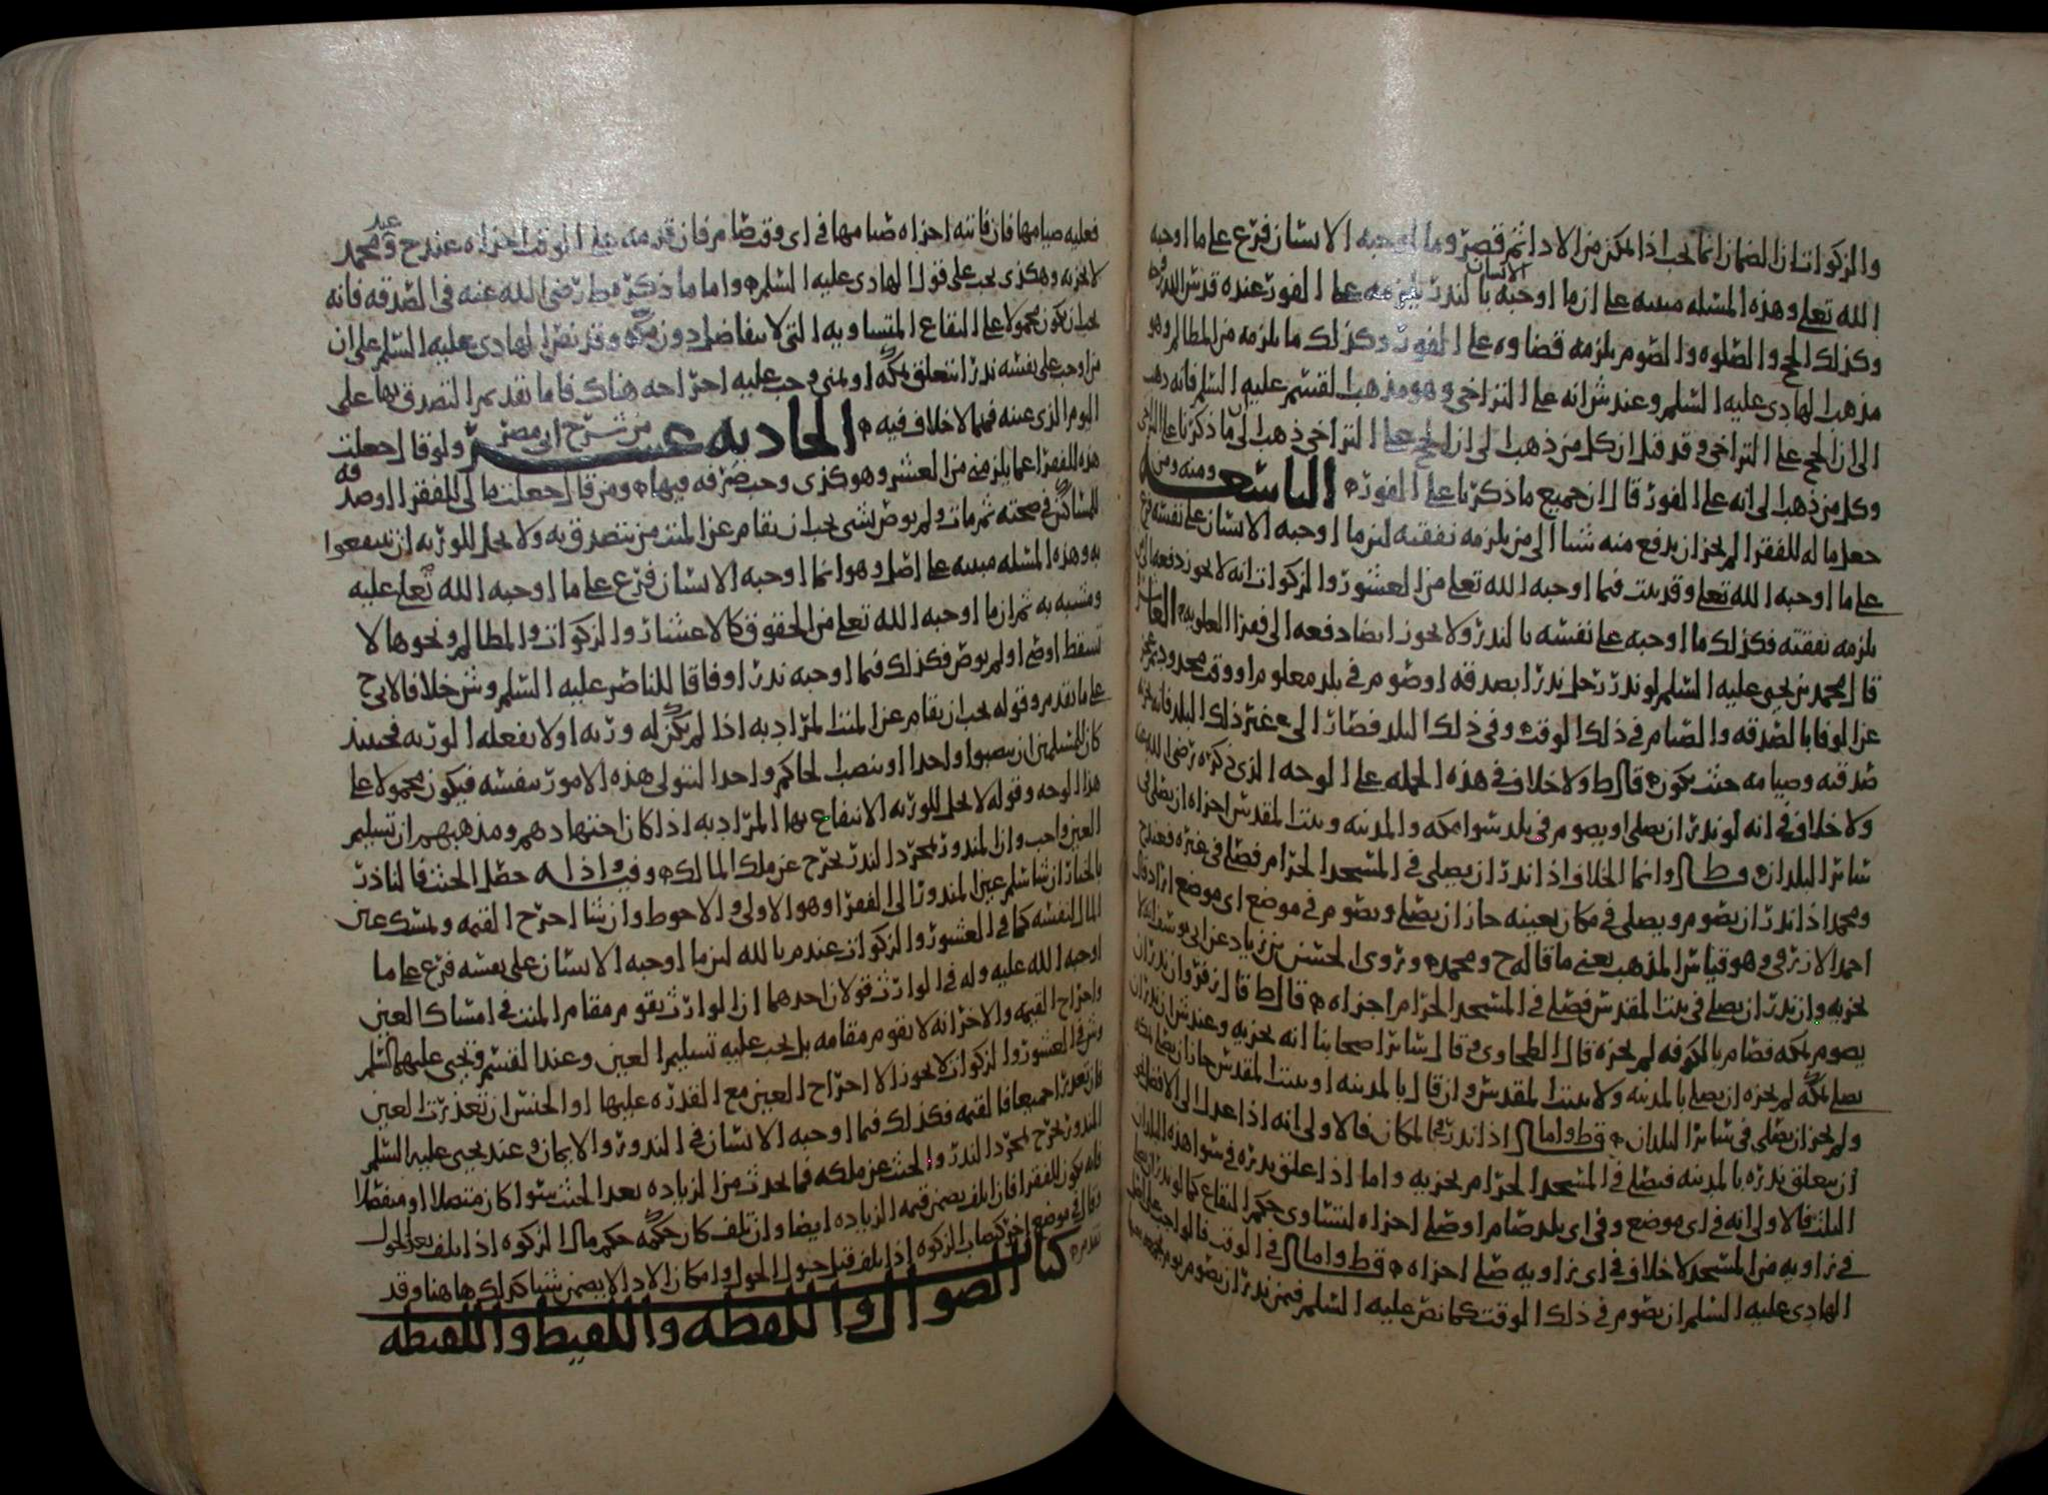 والزكوات ان الضمان انما يجب اذا تمكن من الاداء ثم قصر وما اوجبه الانسان فرع على ما اوجبه
الله تعلى وهذه المسله مبنيه على ان ما اوجبه الانسان بالنذر يلزمه على الفور عنده قدس الله روحه
وكذلك الحج والصلوه والصوم يلزمه قضاوه على الفور وكذلك ما يلزمه من المظالم وهو
مذهب الهادي عليه السلم وعند ش انه على التراخي وهو مذهب القسم عليه السلم فانه ذهب
الى ان الحج على التراخي وقد قيل ان كل من ذهب الى ان الحج على التراخي ذهب الى ان ما ذكرنا على التراخي
وكل من ذهب الى انه على الفور قال ان جميع ما ذكرنا على الفور ه التاسعه ومنه ومن
جعل ماله للفقرا لم يجز ان يدفع منه شيا الى من يلزمه نفقته لان ما اوجبه الانسان على نفسه فرع
على ما اوجبه الله تعلى وقد ثبت فيما اوجبه الله تعلى من العشور والزكوات انه لا يجوز دفعه الى من
يلزمه نفقته فكذلك ما اوجبه على نفسه بالنذر ولا يجوز ايضا دفعه الى فقرا العلويه ه العاشره
قال محمد بن يحيى عليه السلم لو نذر رجل نذرا بصدقه او صوم في بلد معلوم او وقت محدود ثم عجز
عن الوفا بالصدقه والصيام في ذلك الوقت وفي ذلك البلد فصار الى غير ذلك البلد فانه يجزيه
صدقته وصيامه حيث يكون ه قال ط ولا خلاف في هذه الجمله على الوجه الذي ذكره رضي الله عنه
ولا خلاف في انه لو نذر ان يصلي او يصوم في بلد سوا مكه والمدينه وبيت المقدس اجزاه ان يصلي في
سائر البلدان ه وط قال وانما الخلاف اذا نذر ان يصلي في المسجد الحرام فصلى في غيره فعند ح
ومحمد اذا نذر ان يصوم ويصلي في مكان بعينه جاز ان يصلي ويصوم في موضع اي موضع اراد قال
احمد الازرقي وهو قياس المذهب يعني ما قاله ح ومحمد ه وتروى الحسن بن زياد عن ابي يوسف انه لا
يجزيه وان نذر ان يصلي في بيت المقدس فصلى في المسجد الحرام اجزاه ه قال ط قال زفر وان نذر ان
يصوم بمكه فصام بالكوفه لم يجزه قال الطحاوي وقال سائر اصحابنا انه يجزيه وعند ش ان نذر ان
يصلي بمكه لم يجزه ان يصلي بالمدينه ولا ببيت المقدس وان قال بالمدينه او ببيت المقدس جاز ان يصلي بمكه
ولم يجز ان يصلي في سائر البلدان ه قط واما اذا نذر في المكان فالاولى انه اذا عدل الى الافضل نحو
ان يتعلق نذره بالمدينه فيصلي في المسجد الحرام يجزيه واما اذا علق نذره في سوا هذه البلدان
الثلث فالاولى انه في اي موضع وفي اي بلد صام او صلى اجزاه لتساوي حكم البقاع كما لو نذر ان يصلي
في زاويه من المسجد لا خلاف في اي زاويه صلى اجزاه ه قط واما في الوقت فالواجب على اصل
الهادي عليه السلم ان يصوم في ذلك الوقت كما نص عليه السلم فيمن نذر ان يصوم يوم
فعليه صيامها فان فاتته اجزاه صيامها في اي وقت صام فان قدمه على الوقت اجزاه عند ح وعند محمد
لا يجزيه وهكذى يجب على قول الهادي عليه السلم ه واما ما ذكره قط رضي الله عنه في الصدقه فانه
يجب ان يكون محمولا على البقاع المتساويه التي لا يتفاضل دون مكه وقد نص الهادي عليه السلم على ان
من اوجب على نفسه نذرا يتعلق بمكه او بمنى وجب عليه اخراجه هناك فاما تقديم التصدق بها على
اليوم الذي عينه فمما لا خلاف فيه ه الحاديه عشر من شرح ابي مضر ولو قال جعلت
هذه للفقرا عما يلزمني من العشر وهو كذى وجب صرفه فيها ه ومن قال جعلت مالي للفقرا او صدقه
للمساكين في صحته ثم مات ولم يوص بشي يجب ان يقام عن الميت من يتصدق به ولا يحل للورثه ان ينتفعوا
به وهذه المسله مبنيه على اصل وهو انما اوجبه الانسان فرع على ما اوجبه الله تعلى عليه
ومشبه به ثم ان ما اوجبه الله تعلى من الحقوق كالاعشار والزكوات والمظالم ونحوها لا
تسقط اوصى او لم يوص فكذلك فيما اوجبه نذرا وفاقا للناصر عليه السلم وش خلافا لابي ح
على ما تقدم وقوله يجب ان يقام عن الميت المراد به اذا لم يكن له ورثه او لا يفعله الورثه فحينئذ
كان للمسلمين ان ينصبوا واحدا او ينصب الحاكم واحدا ليتولى هذه الامور بنفسه فيكون محمولا على
هذا الوجه وقوله لا يحل للورثه الانتفاع بها المراد به اذا كان اجتهادهم ومذهبهم ان تسليم
العين واجب وان المنذور بمجرد النذر يخرج عن ملك المالك ه وفيه اذا انه حصل الحنث فالناذر
بالخيار ان شا سلم عين المنذور الى الفقرا وهو الاولى والاحوط وان شا اخرج القيمه ويمسك عين
المال لنفسه كما في العشور والزكوات عند م بالله لان ما اوجبه الانسان على نفسه فرع على ما
اوجبه الله عليه وله في الوارث قولان احدهما ان الوارث يقوم مقام الميت في امساك العين
واخراج القيمه والاخر انه لا يقوم مقامه بل يجب عليه تسليم العين وعند القسم ويحيى عليهما السلم
وش في العشور والزكوات لا يجوز الا اخراج العين مع القدره عليها او الجنس ان تعذرت العين
فان تعذرا جميعا فالقيمه فكذلك فيما اوجبه الانسان في النذور والايمان وعند يحيى عليه السلم
المنذور يخرج بمجرد النذر والحنث عن ملكه فما يحدث من الزياده بعد الحنث سوا كان متصلا او منفصلا
فانه يكون للفقرا فان اتلف يضمن قيمه الزياده ايضا وان تلف كان حكمه حكم مال الزكوه اذا تلف بعد الحول
وقال في موضع اخر كنصاب الزكوه اذا تلف قبل حوول الحول وامكان الادا لا يضمن شيا كذلك هاهنا وقد
تقدم ه كتاب الضوال واللقطه واللقيط واللقيطه